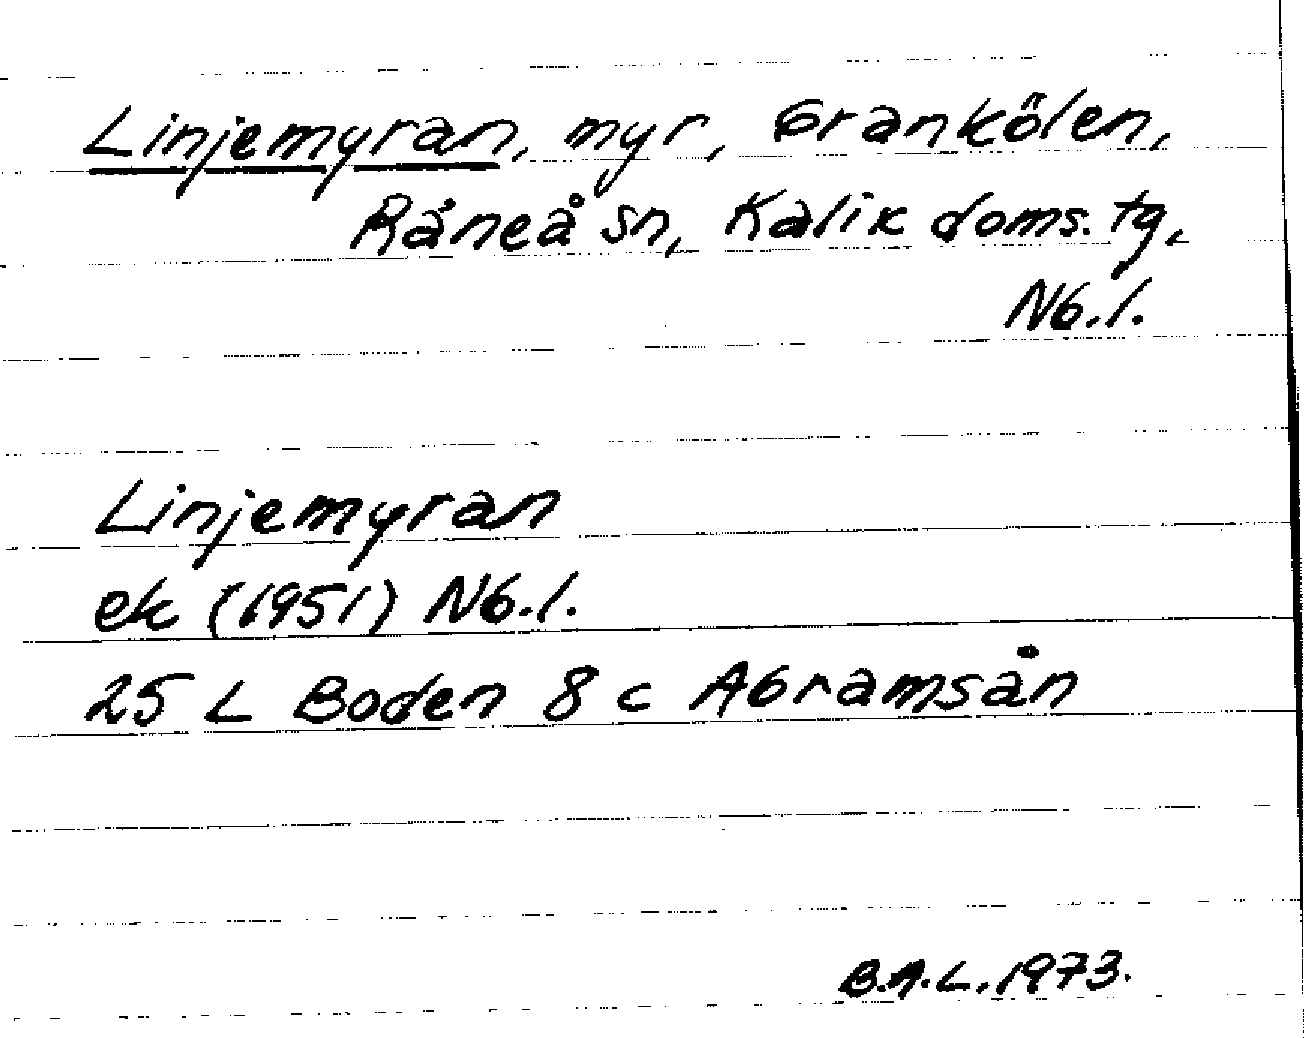 Linjemyran, myr, Grankölen,
Råneå sn, Kalix doms. tg,
Nb.l.
Linjemyran
ek (1951) Nb.l.
25 L Boden 8 c Abramsån
B.A.L. 1973.